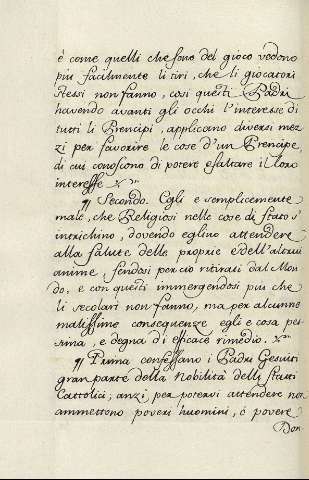 è come quelli che fono del gioco vedono
più facilmente li tiri, che li giocatori
stessi non fanno, così questi Padri
havendo avanti gli occhi l'interesse di
tutti li Prencipi, applicano diversi mez
zi per favorire le cose d'un Prencipe,
di cui conoscono di potere esaltare il loro
interesse
¶ Secondo. Egli e semplicemente
male, che Religiosi nelle cose di stato s'
intrichino, dovendo eglino attendere
alla salute delle proprie e dell'altrui
anime, sendosi perciò ritirati dal Mon
do, e con questi immergendosi più che
li secolari non fanno, ma per alcune
malissime consequenze egli e cosa pes
sima, e degna di efficace rimedio.
¶ Prima confessano i Padri Gesuiti
gran parte della nobilità delli Stati
Cattolici; anzi per potervi attendere non
ammettono poveri huomini, ò povere
Don